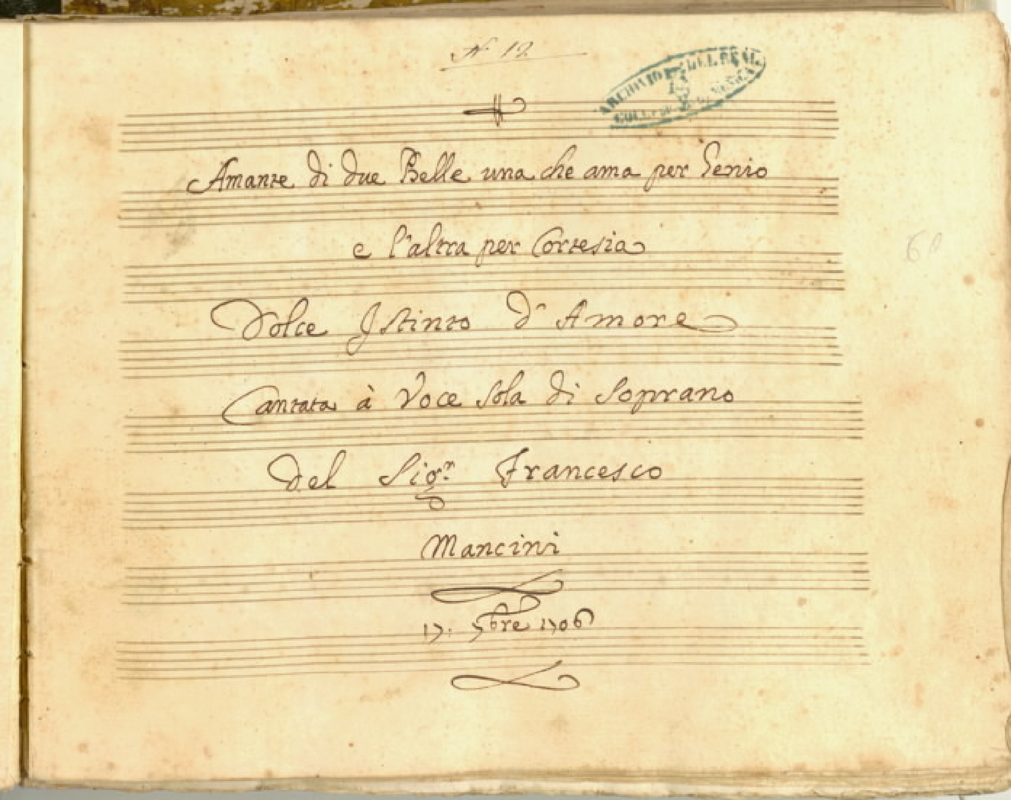 N 12
ARCHIVIO DEL REAL
COLL
Amante di due Belle una che ama per Genio
e l'altra per Cortesia
Dolce Istinto d'Amore
Cantata à Voce sola di Soprano
del Sig.r Francesco
Mancini
17: 7bre 1706